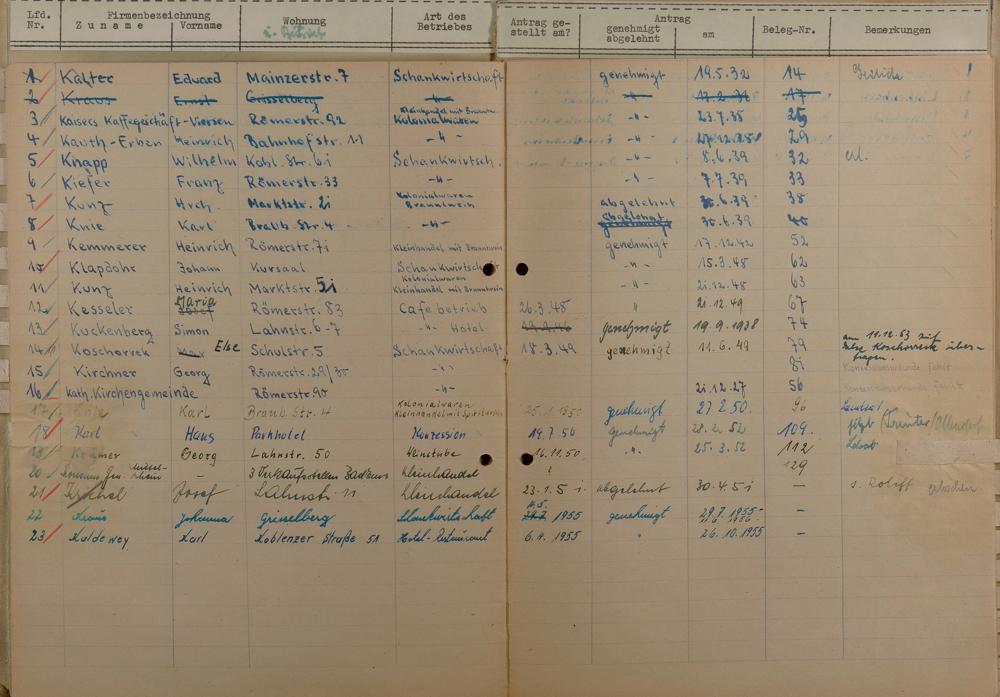 Lfd. Nr. Firmenbezeichnung Zuname Vorname Wohnung Art des Betriebes Antrag gestellt am? Antrag genehmigt abgelehnt am Beleg-Nr. Bemerkungen
1 Kälter Eduard Mainzerstr. 7 Schankwirtschaft genehmigt 19.5.32 14
2 Kraus Ernst Grisselberg -"- -"- 17
3 Kaisers Kaffegeschäft-Viersen Römerstr. 92 Kleinhandel mit Branntw. Kolonialwaren -"- 23.7.35 25
4 Kauth-Erben Heinrich Bahnhofstr. 11 -"- -"- 29
5 Knapp Wilhelm Kobl. Str. 61 Schankwirtsch. -"- 8.6.39 32 erl.
6 Kiefer Franz Römerstr. 33 -"- -"- 7.7.39 33
7 Kunz Hrch. Marktstr. 21 Kolonialwaren Branntwein abgelehnt 30.6.39 38
8 Knie Karl Braub. Str. 4 -"- abgelehnt 30.6.39 40
9 Kemmerer Heinrich Römerstr. 71 Kleinhandel mit Branntwein genehmigt 17.12.42 52
10 Klapdohr Johann Kursaal Schankwirtschaft -"- 15.3.48 62
11 Kunz Heinrich Marktstr. 51 Kolonialwaren Kleinhandel mit Branntwein -"- 21.12.48 63
12 Kesseler Maria Josef Römerstr. 83 Cafe betrieb 26.3.48 " 21.12.49 67
13 Kuckenberg Simon Lahnstr. 6-7 -"- Hotel genehmigt 19.9.1938 74
14 Koschorrek Max Else Schulstr. 5 Schankwirtschaft 18.3.49 genehmigt 11.6.49 79 am 11.12.53 auf Else Koschorrek übertragen.
15 Kirchner Georg Römerstr. 29/30 -"- 81 fehlt
16 Kath. Kirchengemeinde Römerstr. 90 -"- 21.12.27 56 fehlt
17 Knie Karl Braub. Str. 4 Kolonialwaren Kleinhandel mit 25.1.1950 genehmigt 27.2.50. 96
18 Karl Hans Parkhotel Konzession 19.7.50 genehmigt 28.2.52 109.
19 Krämer Georg Lahnstr. 50 Weinstube 16.11.50 " 25.3.52 112
20 Konsum Gen. - 3 Verkaufsstellen Kleinhandel 129
21 Josef Lahnstr. 11 Kleinhandel 23.1.51 abgelehnt 30.4.51 - erloschen
22 Kraus Johanna Grisselberg Schankwirtschaft 1955 genehmigt 29.7.1955 -
23 Kaldewey Karl Koblenzer Straße 51 Hotel-Restaurant 6.9.1955 " 26.10.1955 -